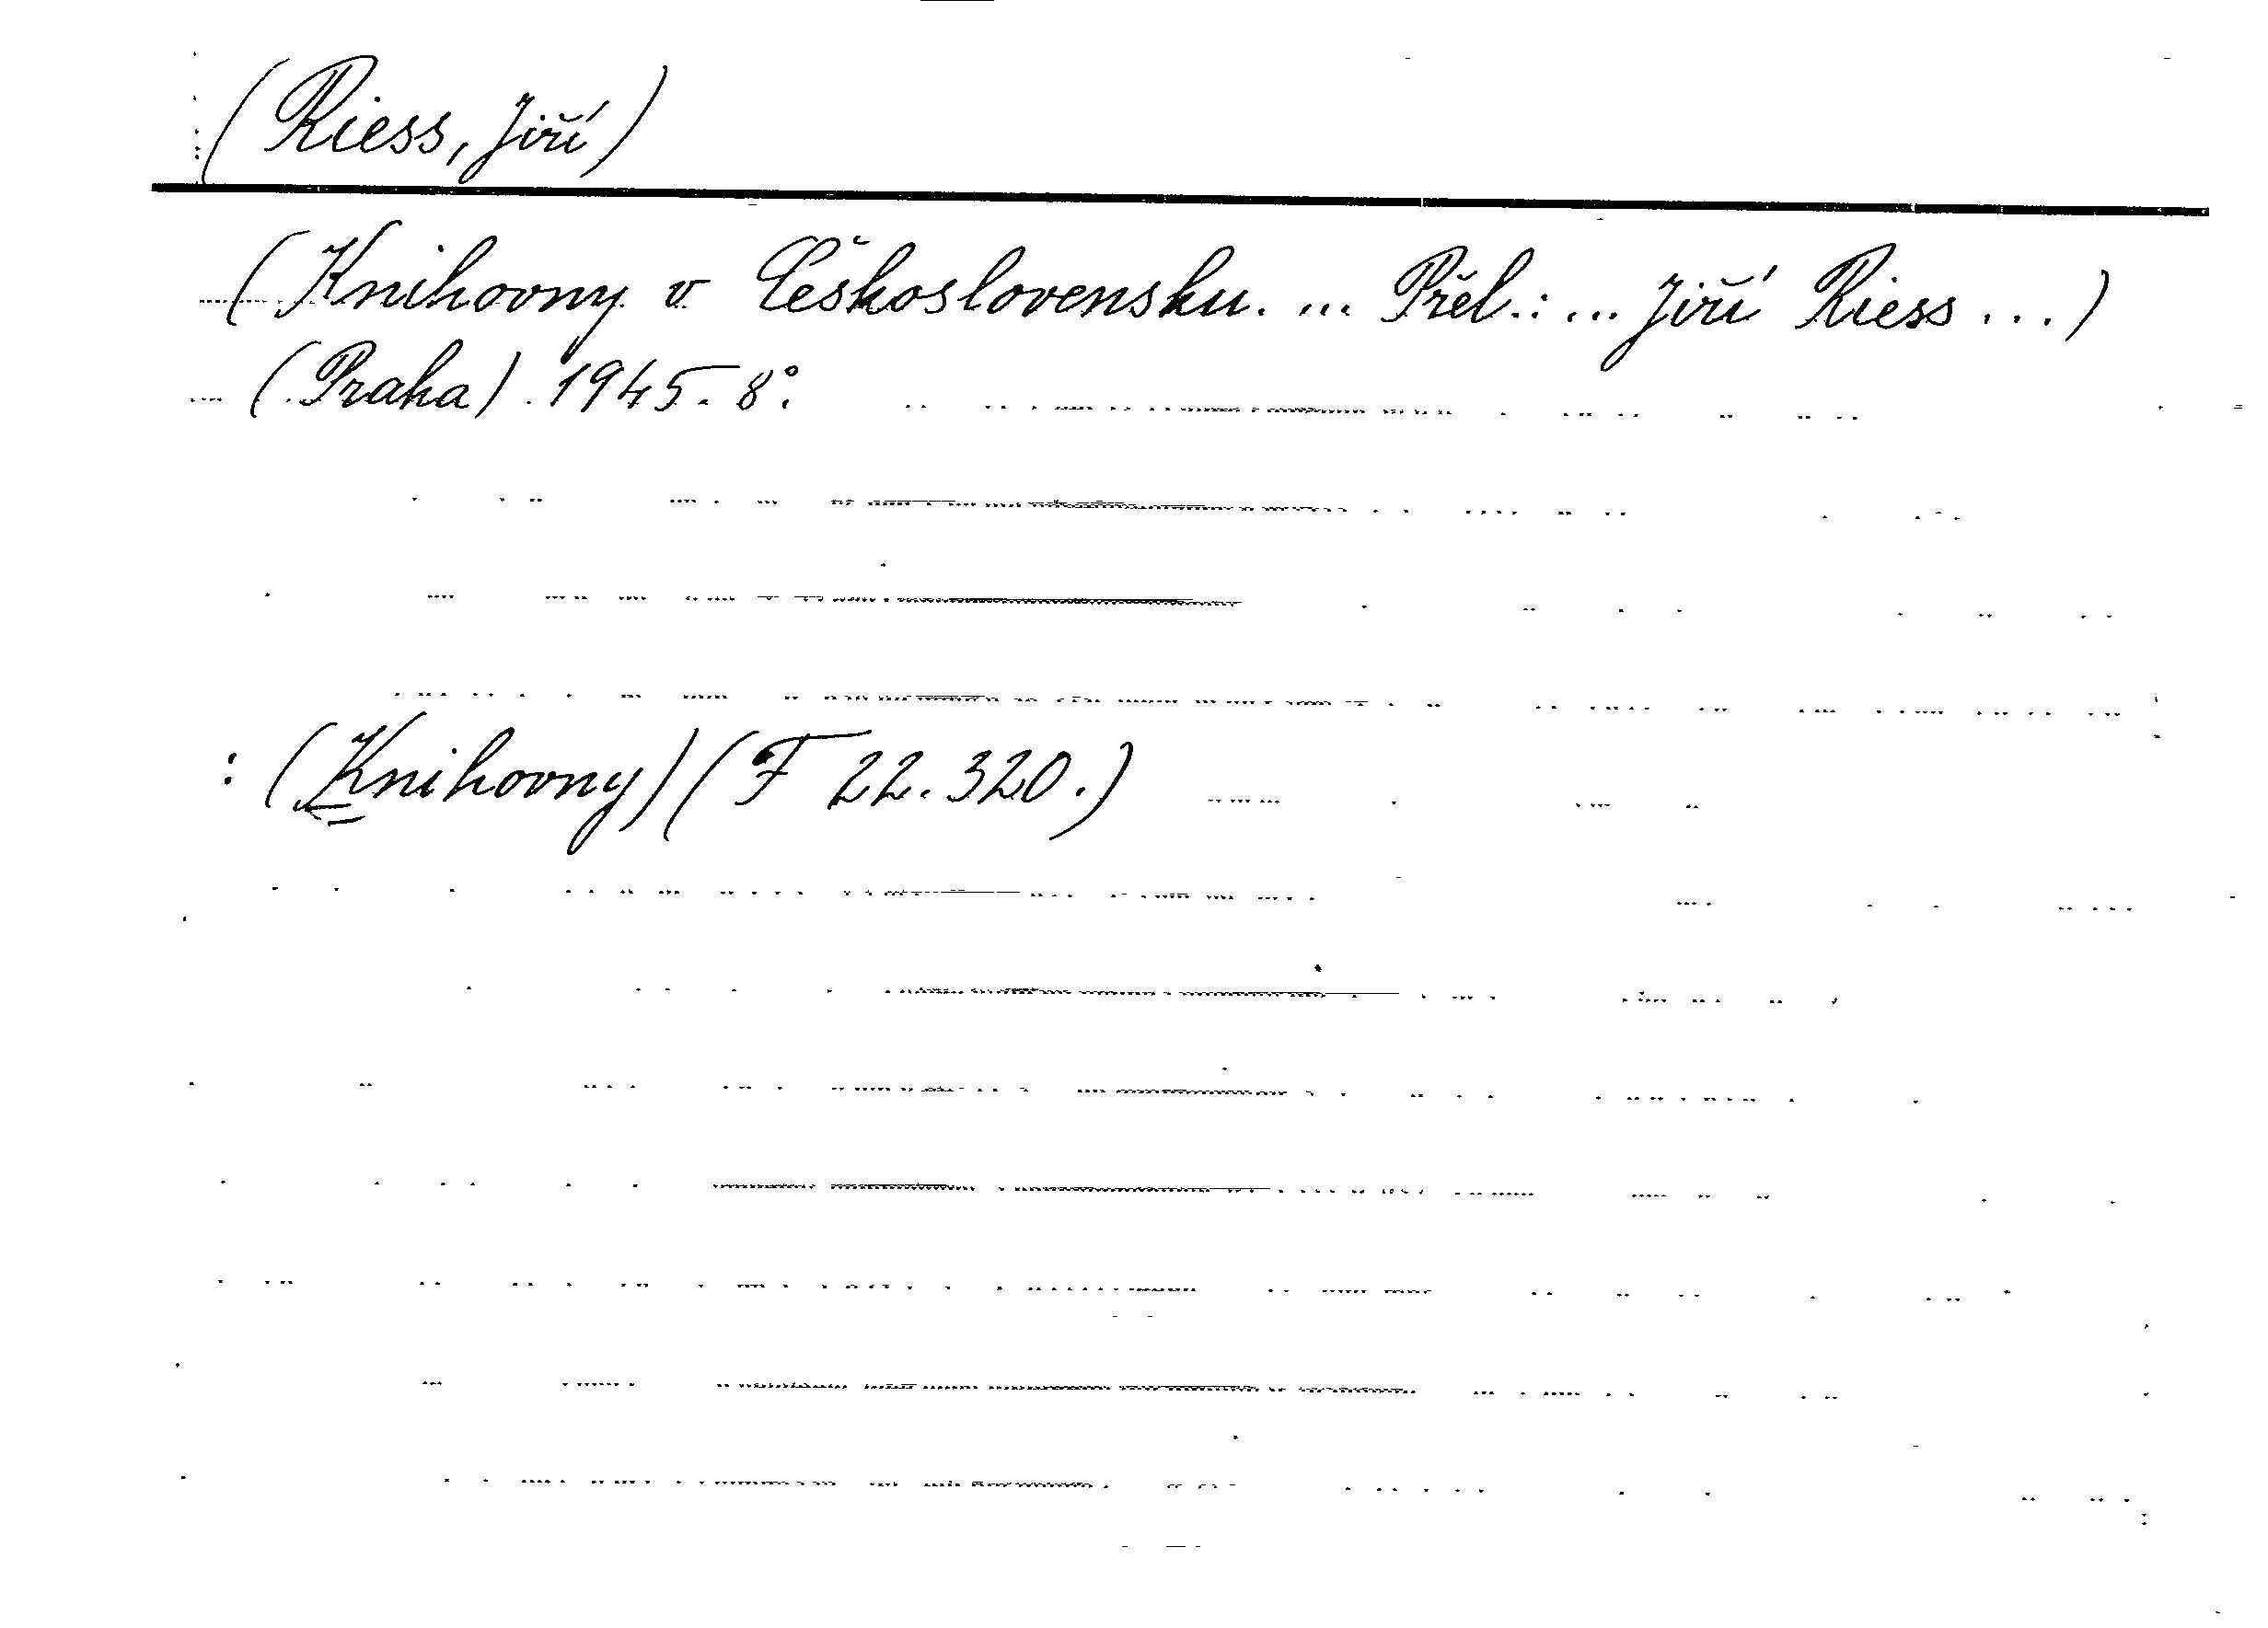 (Riess, Jiří)
(Knihovny v Československu. ... Přel.: ... Jiří Riess ...)
(Praha) 1945. 8°.
: (Knihovny) (F 22.320.)